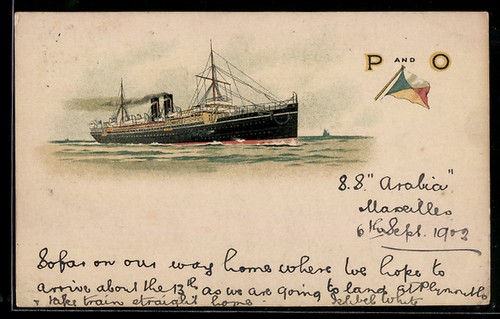 P AND O
S.S "Arabia"
Marseilles
6th Sept. 1902
Sofar on our way home where we hope to
arrive about the 13th as we are going to land at Plymouth
& take train straight home.